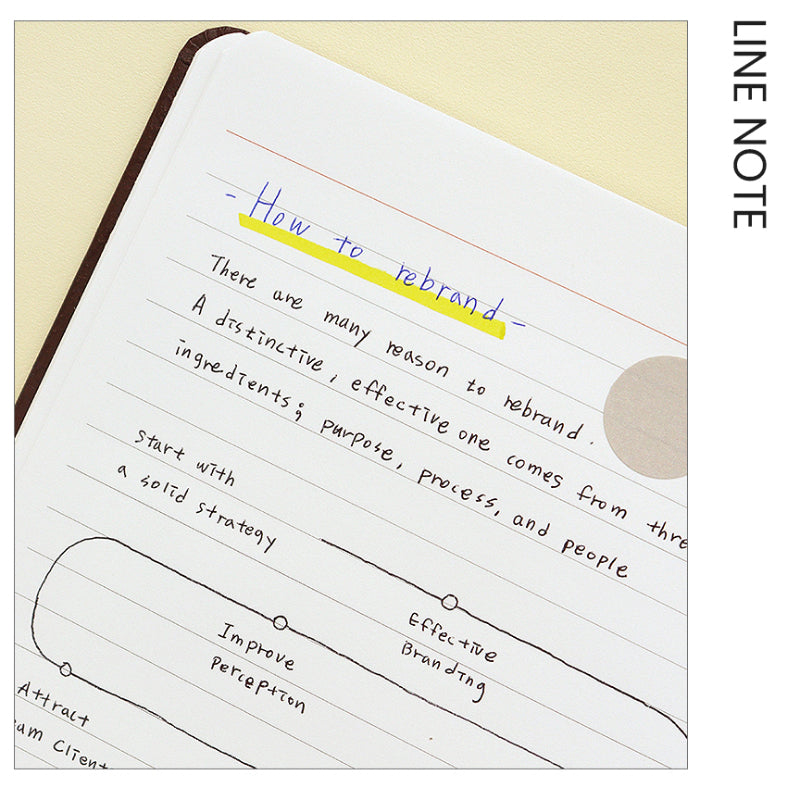 LINE NOTE
- How to rebrand -
There are many reason to rebrand.
A distinctive, effective one comes from
ingredients; purpose, process, and people
Start with
a solid strategy
Effective
Branding
Improve
Perception
Attract